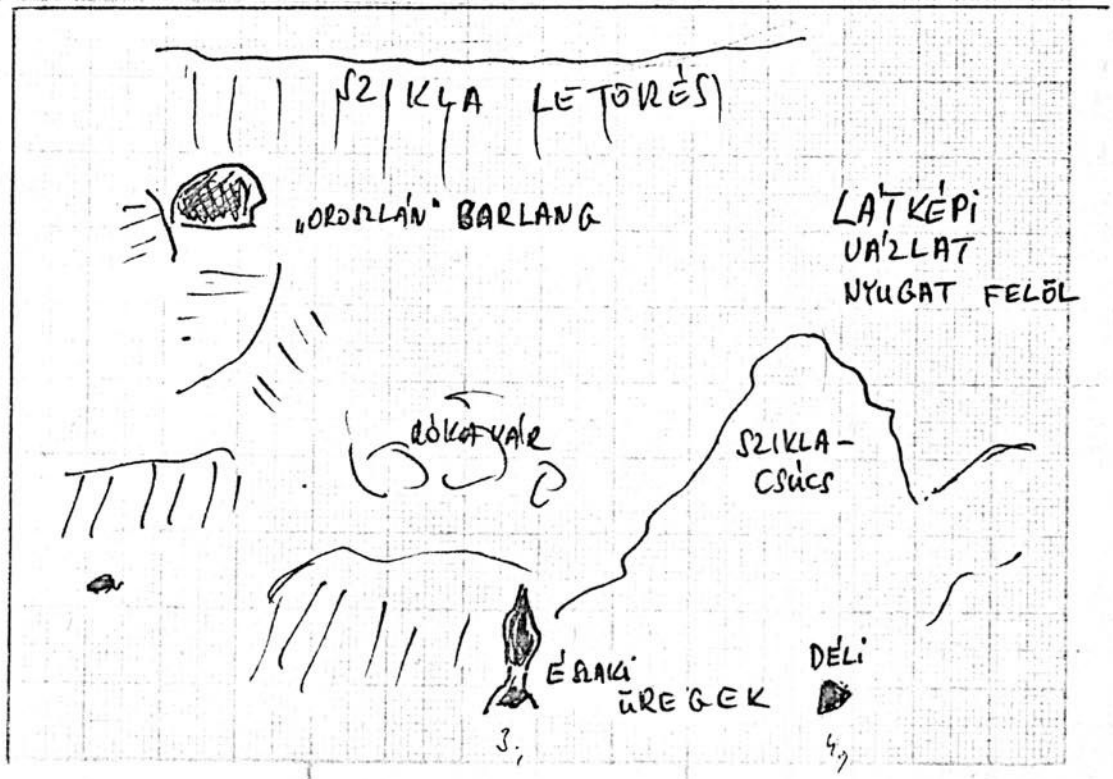 SZIKLA LETÖRÉS
„OROSZLÁN" BARLANG
LÁTKÉPI
VÁZLAT
NYUGAT FELŐL
RÓKAVÁR
SZIKLA-
CSÚCS
ÉSZAKI
ÜREGEK
DÉLI
3.,
4.,